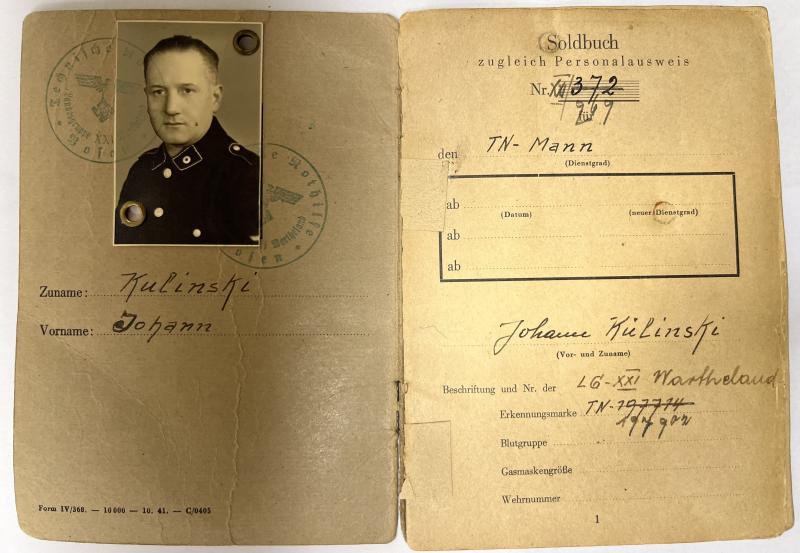 Technische Nothilfe
Posen
Zuname: Kulinski
Vorname: Johann
Form IV/360. — 10 000 — 10. 41. — C/0405
Soldbuch
zugleich Personalausweis
Nr. XXI/372
969
für
den TN- Mann
(Dienstgrad)
ab
(Datum) (neuer Dienstgrad)
ab
ab
Johann Külinski
(Vor- und Zuname)
Beschriftung und Nr. der LG-XXI Wartheland
Erkennungsmarke TN-197714
197902
Blutgruppe
Gasmaskengröße
Wehrnummer
1